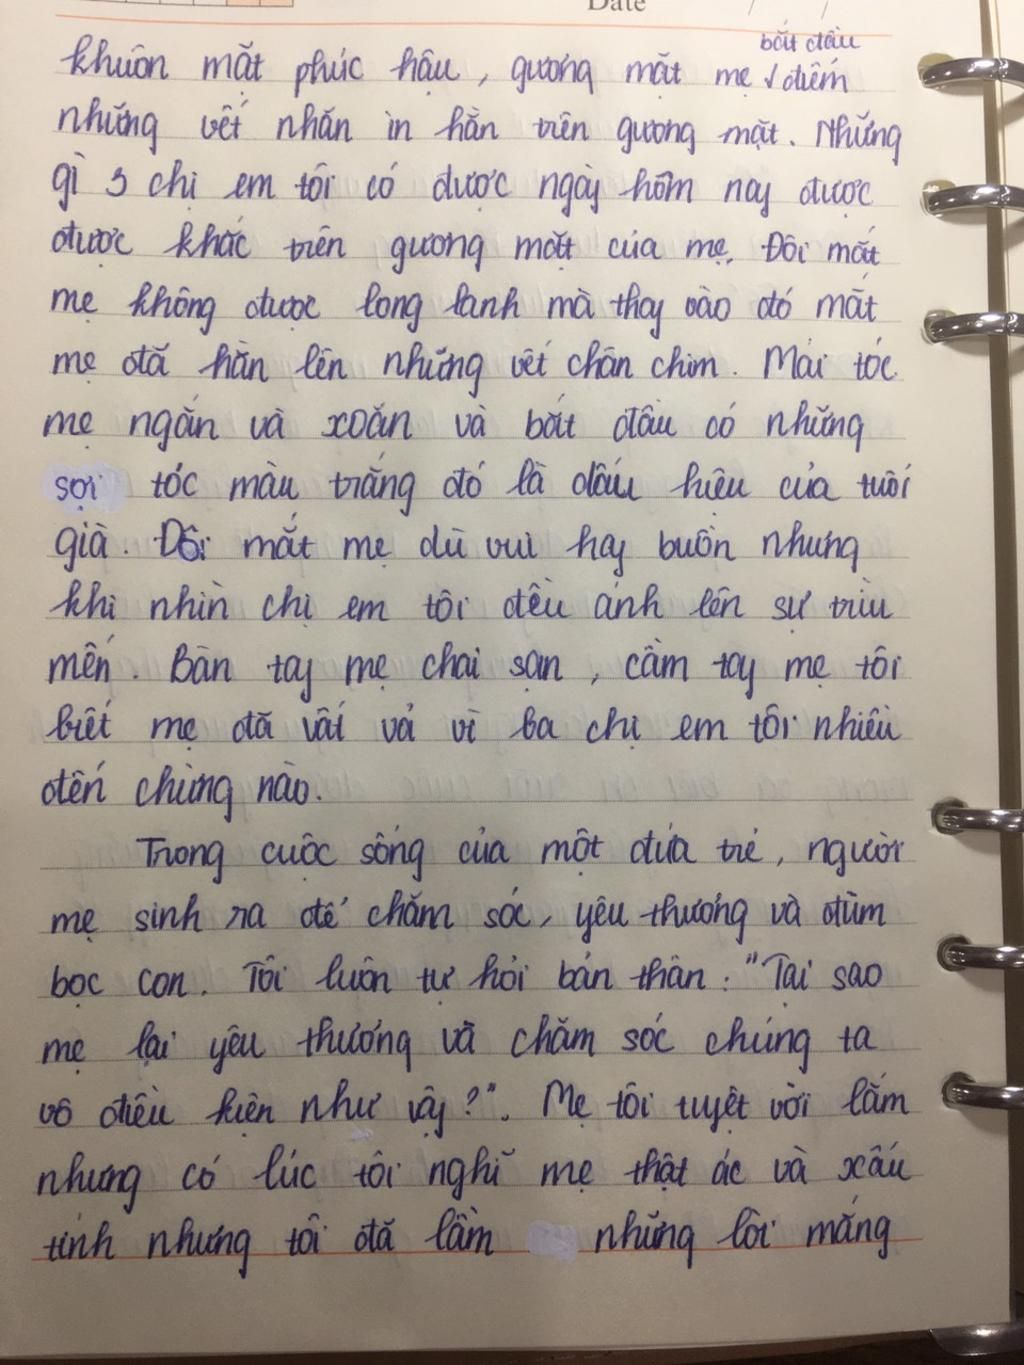 Date / /
khuôn mặt phúc hậu, gương mặt mẹ √ bắt đầu điểm
những vết nhăn in hằn trên gương mặt. Những
gì 3 chị em tôi có được ngày hôm nay được
được khắc trên gương mặt của mẹ. Đôi mắt
mẹ không được long lanh mà thay vào đó mắt
mẹ đã hằn lên những vết chân chim. Mái tóc
mẹ ngắn và xoăn và bắt đầu có những
sợi tóc màu trắng đó là dấu hiệu của tuổi
già. Đôi mắt mẹ dù vui hay buồn nhưng
khi nhìn chị em tôi đều ánh lên sự trìu
mến. Bàn tay mẹ chai sạn, cầm tay mẹ tôi
biết mẹ đã vất vả vì ba chị em tôi nhiều
đến chừng nào.
Trong cuộc sống của một đứa trẻ, người
mẹ sinh ra để chăm sóc, yêu thương và đùm
bọc con. Tôi luôn tự hỏi bản thân: "Tại sao
mẹ lại yêu thương và chăm sóc chúng ta
vô điều kiện như vậy?". Mẹ tôi tuyệt vời lắm
nhưng có lúc tôi nghĩ mẹ thật ác và xấu
tính nhưng tôi đã lầm những lời mắng